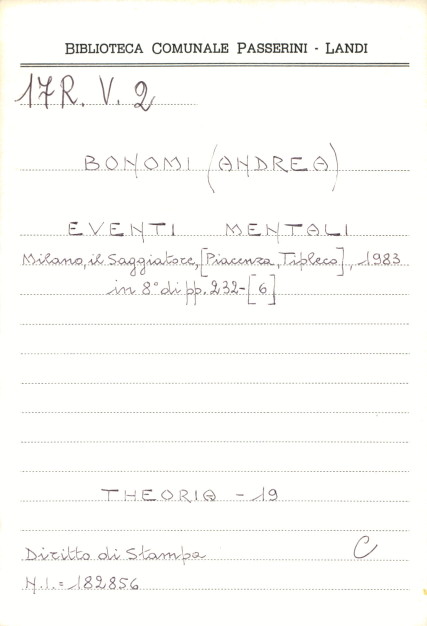 BIBLIOTECA COMUNALE PASSERINI - LANDI
17R. V. 2
BONOMI (ANDREA)
EVENTI MENTALI
Milano, il Saggiatore, [Piacenza, Tipleco], 1983
in 8° di pp. 232-[6]
THEORIA - 19
Diritto di Stampa C
N.I. = 182856